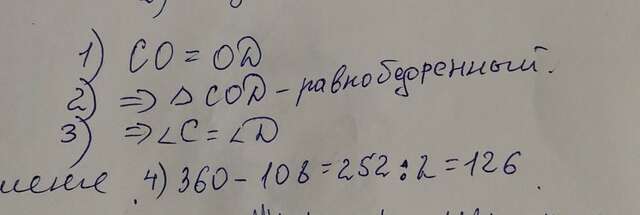 1) CO = OD
2) ⇒ △ COD – равнобедренный.
3) ⇒ ∠C = ∠D
4) 360 – 108 = 252 : 2 = 126